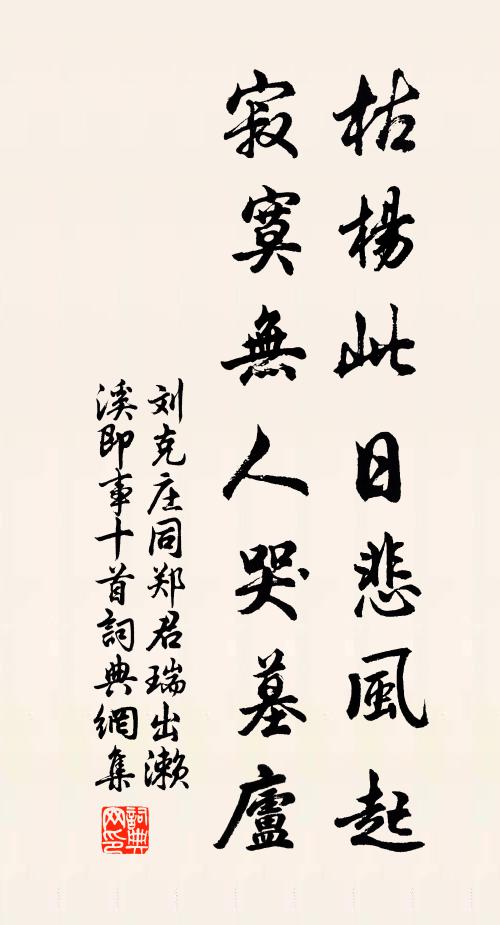 枯楊此日悲風起
寂寞無人哭墓廬
刘克庄同郑君瑞出濑
溪即事十首詞典網集
詞典
网印